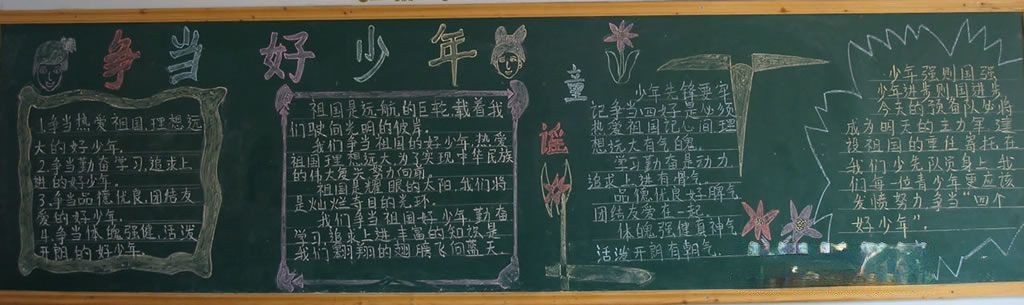 争当好少年
1.争当热爱祖国,理想远
大的好少年。
2.争当勤奋学习,追求上
进的好少年。
3.争当品德优良,团结友
爱的好少年。
4.争当体魄强健,活泼
开朗的好少年。
祖国是远航的巨轮,载着我
们驶向光明的彼岸。
我们争当祖国的好少年,热爱
祖国理想远大,为了实现中华民族
的伟大复兴努力向前。
祖国是耀眼的太阳,我们将
是灿烂夺目的光环。
我们争当祖国好少年,勤奋
学习,追求上进,丰富的知识是
我们翱翔的翅膀飞向蓝天
童谣
少年先锋要牢
记争当四好是必须
热爱祖国记心间理
想远大有气魄。
学习勤奋是动力
追求上进有骨气
品德优良好脾气
团结友爱在一起
体魄强健真神气
活泼开朗有朝气
少年强则国强
少年进步则国进步
今天的预备队必将
成为明天的主力军,建
设祖国的重任寄托在
我们少先队员身上,我
们每一位青少年更应该
发愤努力,争当“四个
好少年”。